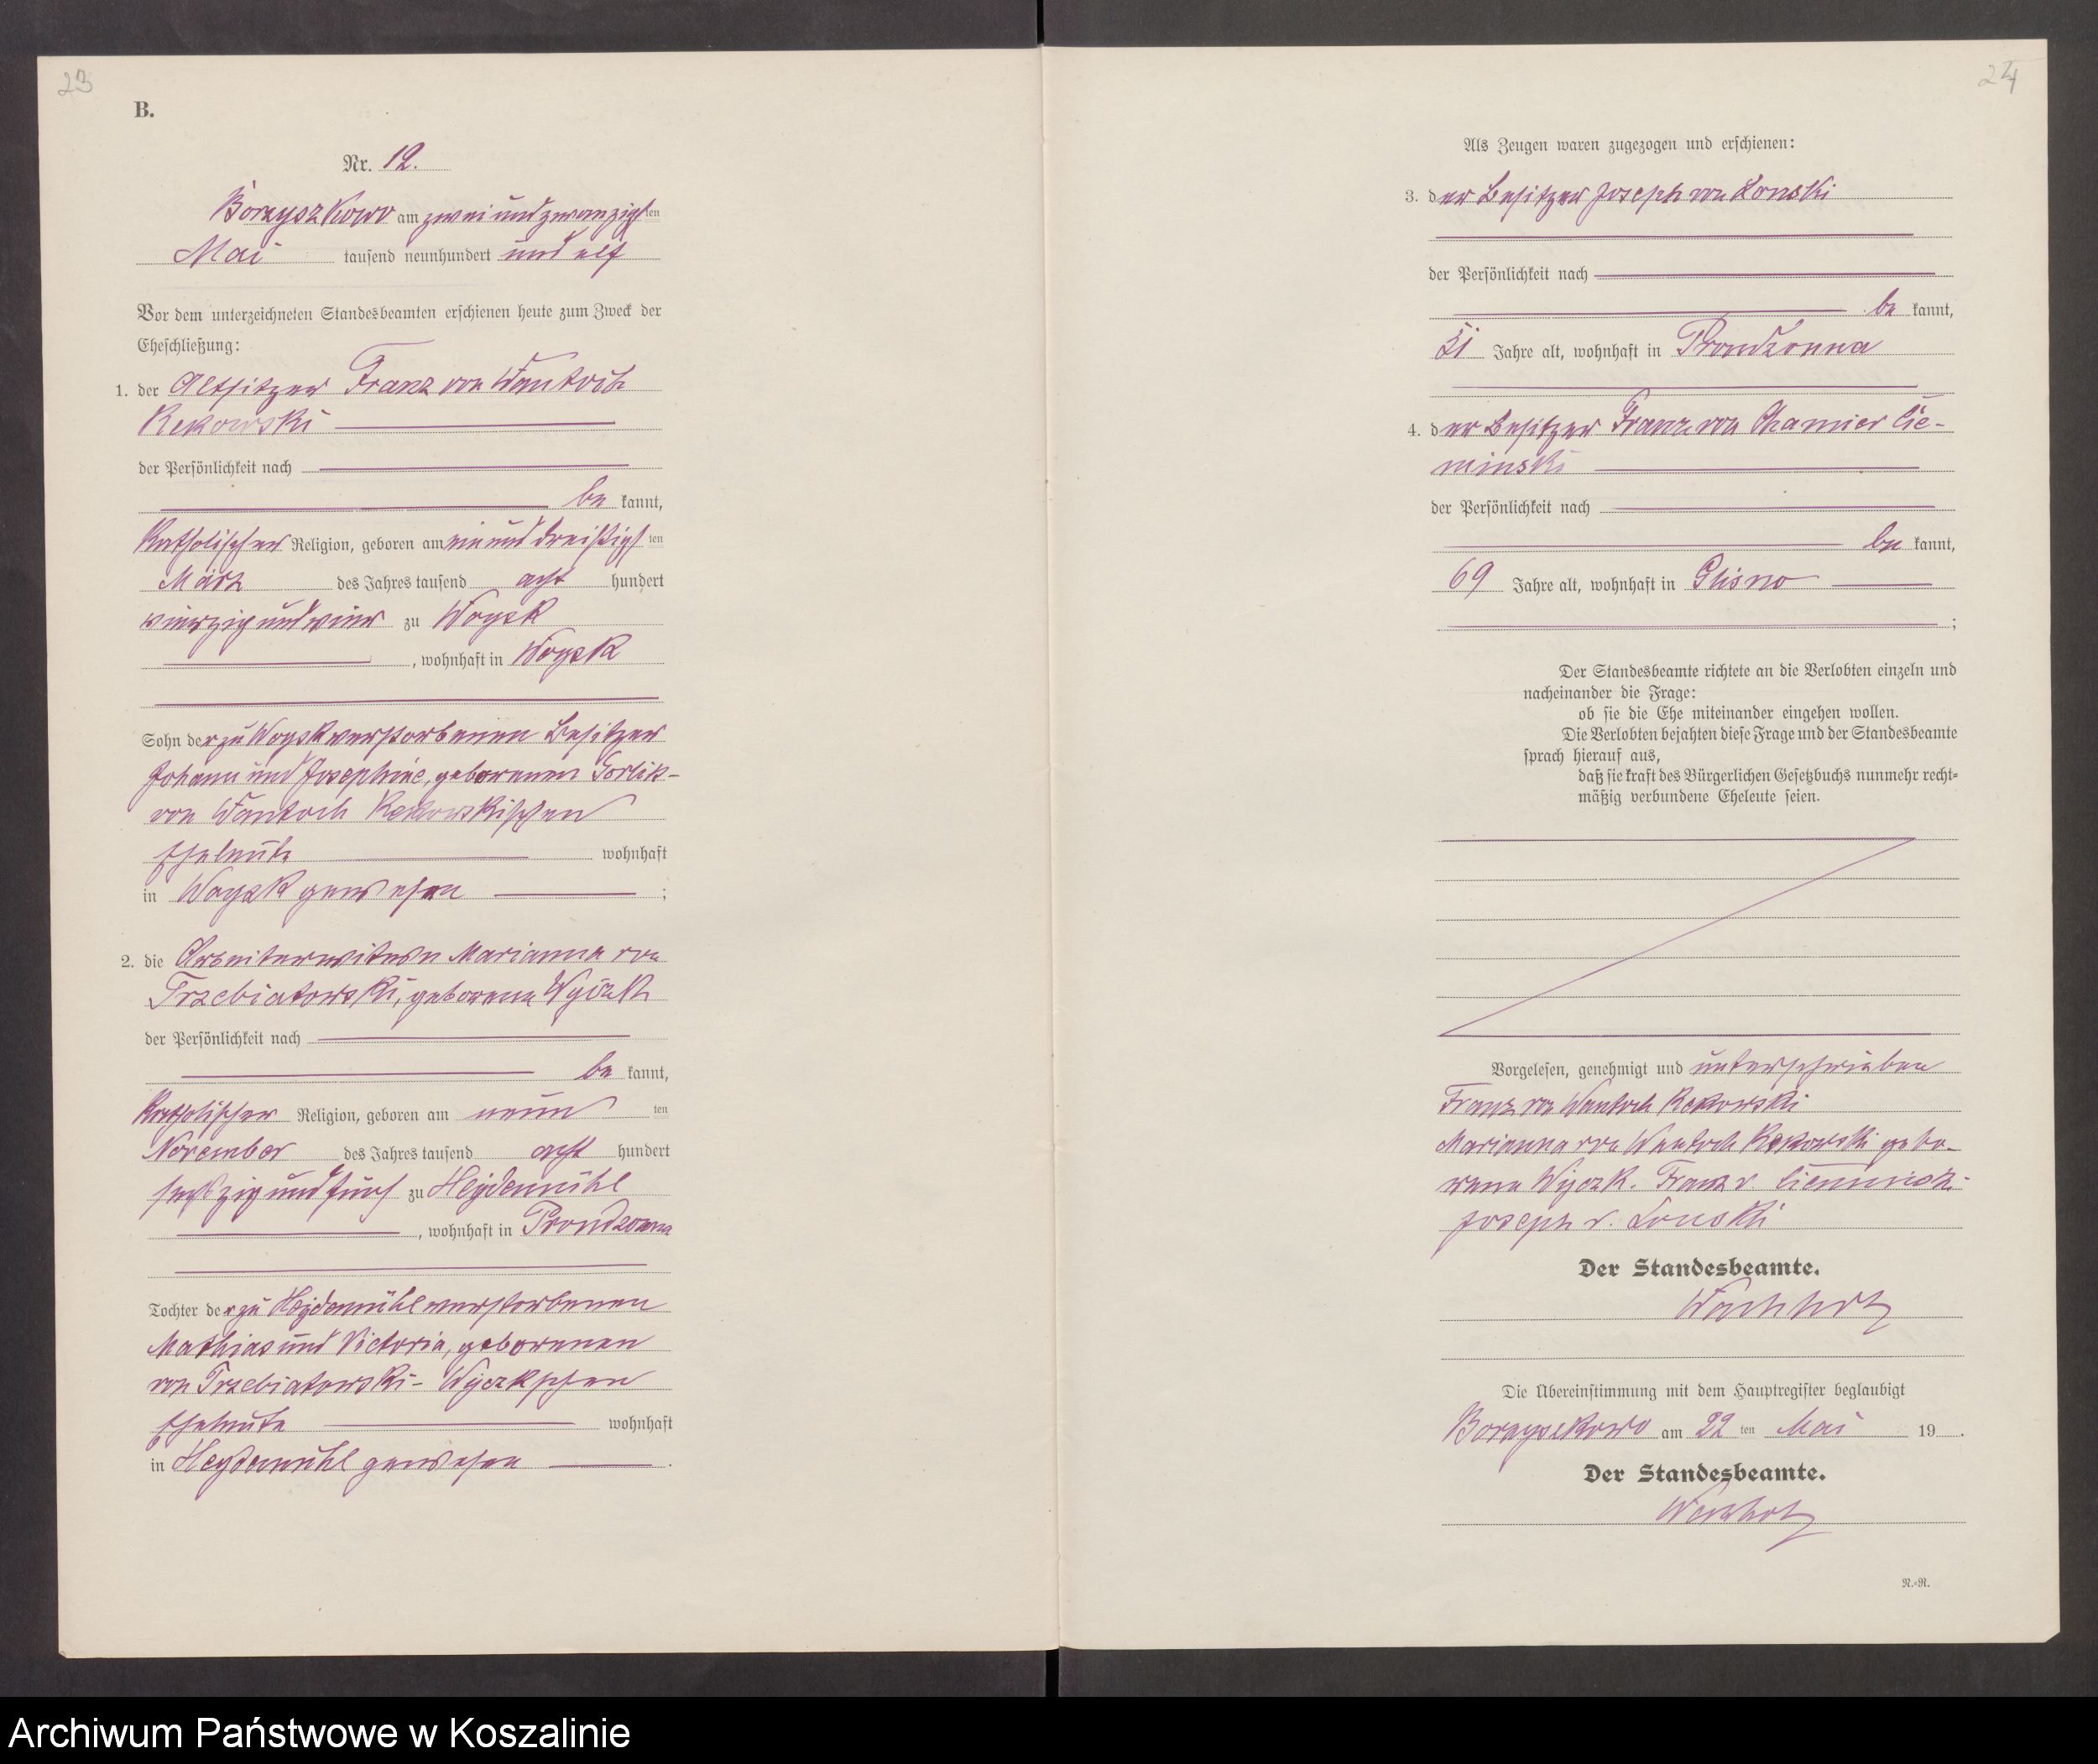 23
B.
Nr. 12.
Borzyszkowo am zwei und zwanzigsten
Mai tausend neunhundert und elf
Vor dem unterzeichneten Standesbeamten erschienen heute zum Zweck der
Eheschließung:
1. der Altsitzer Franz von Wantoch
Rekowski
der Persönlichkeit nach
be kannt,
katholischer Religion, geboren am ein und dreißigsten
März des Jahres tausend acht hundert
vierzig und vier zu Woysk
, wohnhaft in Woysk
Sohn der zu Woysk verstorbenen Besitzer
Johann und Josephine, geborenen
von Wantoch Rekowskischen
Eheleute wohnhaft
in Woysk gewesen ;
2. die Arbeiterwitwe Marianna von
Trzebiatowski, geborene
der Persönlichkeit nach
be kannt,
katholischer Religion, geboren am neun ten
November des Jahres tausend acht hundert
sechzig und fünf zu Heydemühl
, wohnhaft in Prondzonna
Tochter der zu Heydemühl verstorbenen
Mathias und Victoria, geborenen
von Trzebiatowski-
Eheleute wohnhaft
in Heydemühl gewesen .
24
Als Zeugen waren zugezogen und erschienen:
3. der Besitzer Joseph von Lonski
der Persönlichkeit nach
be kannt,
51 Jahre alt, wohnhaft in Prondzonna
4. der Besitzer Franz von Chamier Cie-
minski
der Persönlichkeit nach
be kannt,
69 Jahre alt, wohnhaft in Glisno
;
Der Standesbeamte richtete an die Verlobten einzeln und
nacheinander die Frage:
ob sie die Ehe miteinander eingehen wollen.
Die Verlobten bejahten diese Frage und der Standesbeamte
sprach hierauf aus,
daß sie kraft des Bürgerlichen Gesetzbuchs nunmehr recht=
mäßig verbundene Eheleute seien.
Vorgelesen, genehmigt und unterschrieben
Franz von Wantoch Rekowski
Marianna von Wantoch Rekowski gebo-
rene Wyczk. Franz v.
Joseph v. Lonski
Der Standesbeamte.
Wachholz
Die Übereinstimmung mit dem Hauptregister beglaubigt
Borzyszkowo am 22 ten Mai 19 .
Der Standesbeamte.
Wachholz
N.=R.
Archiwum Państwowe w Koszalinie